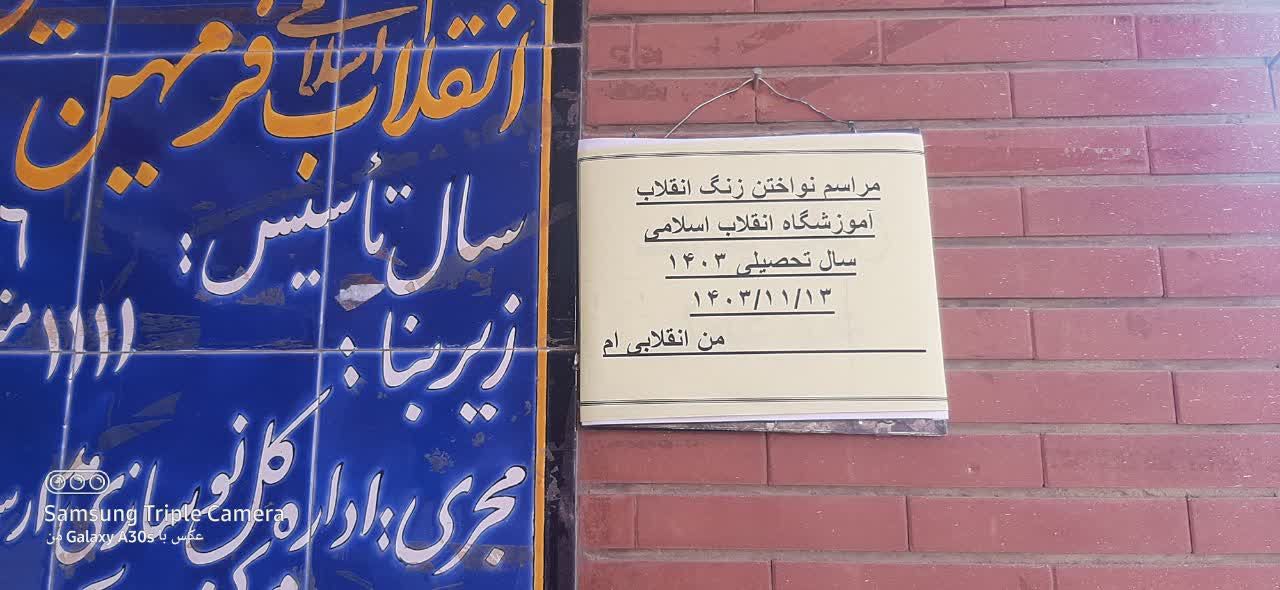 اسلامی
انقلاب فرمهین
سال تأسیس :
زیربنا : ۱۱۱۱
مجری : اداره کل نوسازی
مراسم نواختن زنگ انقلاب
آموزشگاه انقلاب اسلامی
سال تحصیلی ۱۴۰۳
۱۴۰۳/۱۱/۱۳
من انقلابی ام
Samsung Triple Camera
عکس با Galaxy A30s من